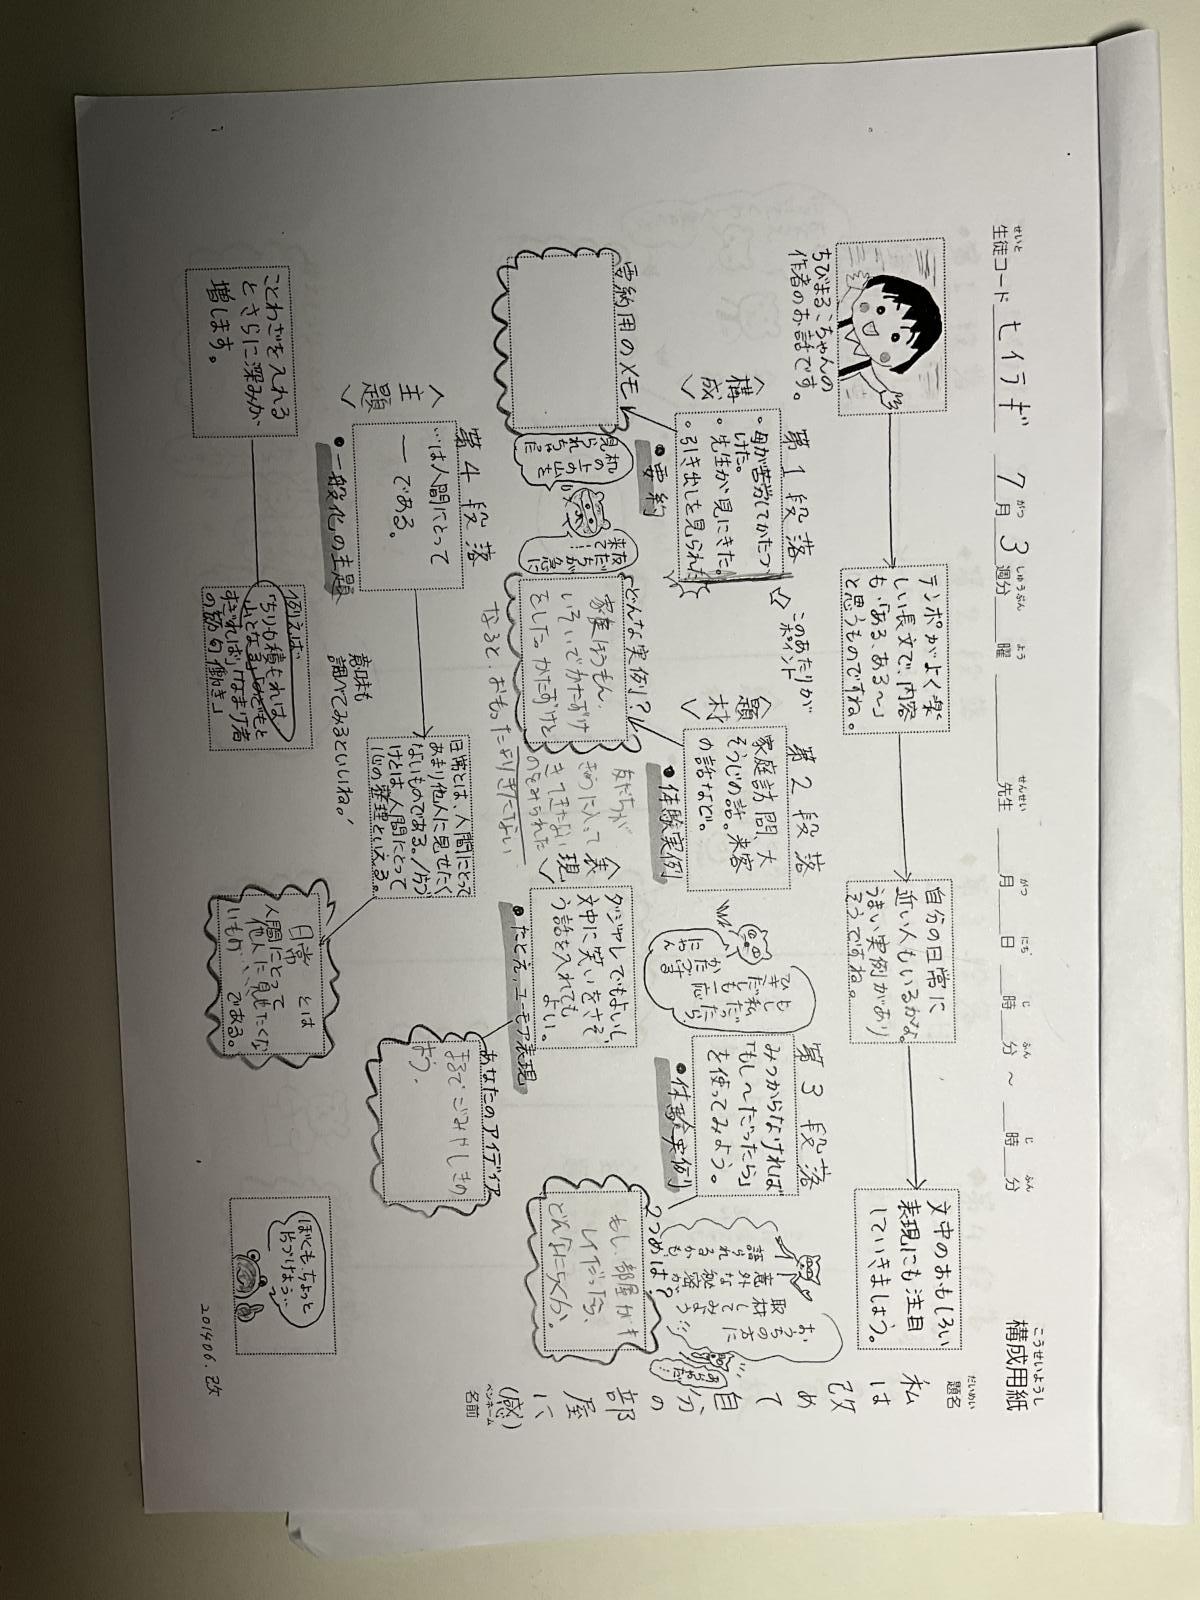 構成用紙
こうせいようし
生徒コード セイラギ 7月 3週分 曜 先生 月 日 時 分 ～ 時 分
題名
だいめい
私は改めて自分の部屋に、(感)
ペンネーム
名前
ちびまるこちゃんの
作者のお話です。
テンポがよく楽
しい長文で、内容
も、「ある、ある～」
と思うものですね。
自分の日常に
近い人もいるかな。
うまい実例があり
そうですね。
文中のおもしろい
表現にも注目
していきましょう。
〈構成〉
第1段落
・母が苦労してかたづ
けた。
・先生が見にきた。
・引き出しを見られた
このあたりが
ポイント
●要約
要約用のメモ
机の上の山を
見られちゃった。
友だちが急に
来て…!
〈題材〉
第2段落
家庭訪問、大
そうじの話。来客
の話など。
●体験実例
どんな実例!?
家庭ほうもん、
いそいでかたずけ
をした かたずけと
なると、おもったよりきたない
友だちが
きゅうに入って
きてきたない
のをみられた
第3段落
みつからなければ
「もし～だったら」
を使ってみよう。
●体験実例
2つめは?
もし、部屋がキ
レイだったら、
どんなにらくか。
おうちの方に
取材してみよう
意外な秘密が
語られるかも
〈表現〉
ダジャレでもよいし
文中に笑いをさそ
う話を入れても
よい。
●たとえ、ユーモア表現
あなたのアイディア
まるでごみやしきの
よう。
〈主題〉
第4段落
…は人間にとって
―である。
●一般化の主題
日常とは、人間にとって
あまり他人に見せたく
ないものである。/片づ
けとは人間にとって
心の整理といえる。
日常 とは
人間にとって
他人に見せたくな
いもの……
である。
ことわざを入れる
とさらに深みが
増します。
例えば
「ちりも積もれば
山となる」
「なまけ者
の節句働き」
意味も
調べてみるといいね。
ぼくも、ちょっと
片づけよう…
201406.改